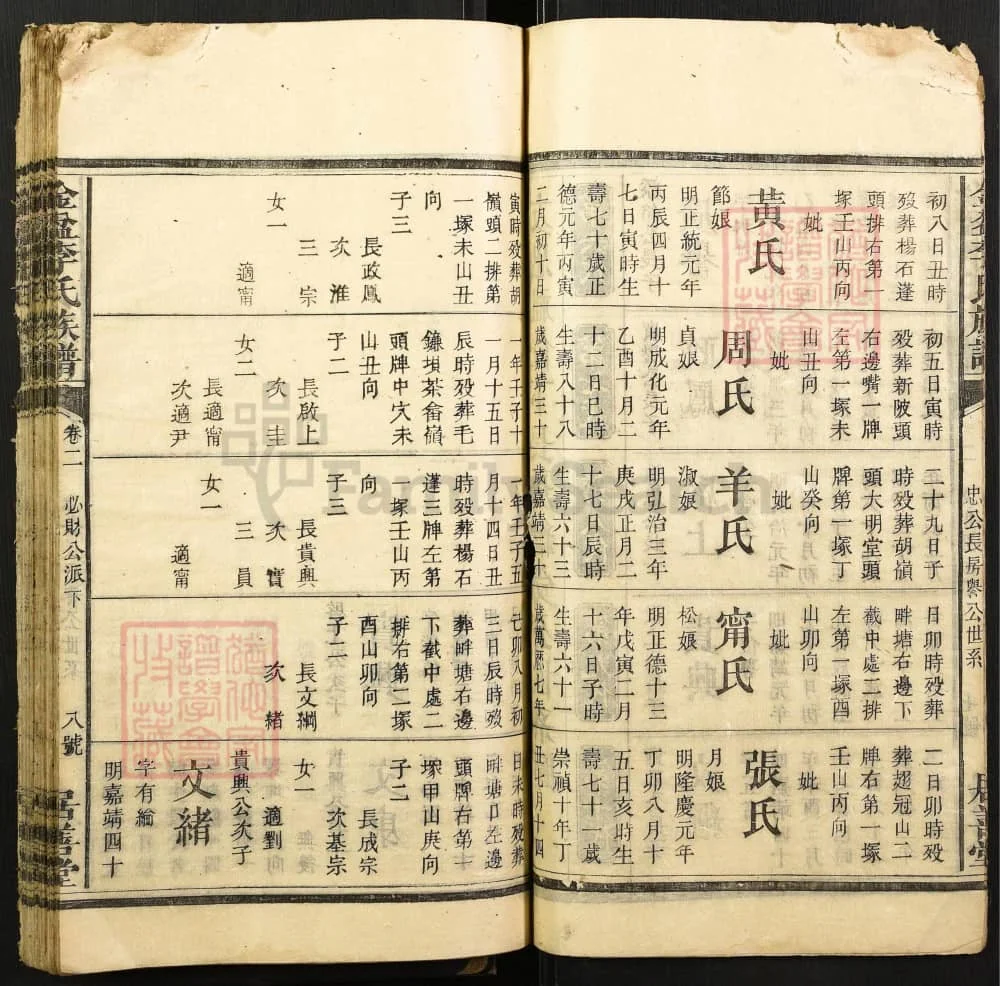 忠公長房譽公世系
初八日丑時
歿葬楊石蓬
頭排右第一
塚壬山丙向
妣
黃氏
節娘
明正統元年
丙辰四月十
七日寅時生
壽七十歲正
德元年丙寅
二月初十日
初五日寅時
歿葬新陂頭
右邊嘴一牌
左第一塚未
山丑向
妣
周氏
貞娘
明成化元年
乙酉十月二
十二日巳時
生壽八十八
歲嘉靖三十
二十九日子
時歿葬胡嶺
頭大明堂頭
牌第一塚丁
山癸向
妣
羊氏
淑娘
明弘治三年
庚戌正月二
十七日辰時
生壽六十三
歲嘉靖三十
日卯時歿葬
畔塘右邊下
截中處二排
左第一塚酉
山卯向
妣
甯氏
松娘
明正德十三
年戊寅二月
十六日子時
生壽六十一
歲萬歷七年
二日卯時歿
葬趙冠山二
牌右第一塚
壬山丙向
妣
張氏
月娘
明隆慶元年
丁卯八月十
五日亥時生
壽七十一歲
崇禎十年丁
丑七月十四
寅時歿葬胡
嶺頭二排第
一塚未山丑
向
子三
長政鳳
次淮
三宗
女一
適甯
一年壬子十
一月十五日
辰時歿葬毛
鐮垻茶畬嶺
頭牌中穴未
山丑向
子二
長啟上
次圭
女二
長適甯
次適尹
一年壬子五
月十四日丑
時歿葬楊石
蓬三牌左第
一塚壬山丙
向
子三
長貴興
次寶
三員
女一
適甯
己卯八月初
三日辰時歿
葬畔塘右邊
下截中處二
排右第二塚
酉山卯向
子二
長文綱
次緒
日未時歿葬
畔塘口左邊
頭牌右第十
塚甲山庚向
子二
長成宗
次基宗
女一
適劉
貴興公次子
文緒
字有綸
明嘉靖四十
李氏族譜
卷二
必財公派下
八號
居善堂